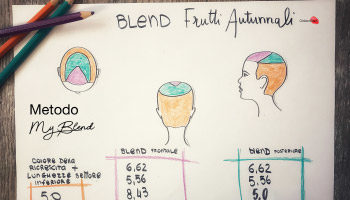 BLEND Frutti Autunnali
Metodo
My Blend
COLORE DELLA
RICRESCITA +
LUNGHEZZE SETTORE
INFERIORE
5.0
BLEND FRONTALE
6,62
5,56
8,43
BLEND POSTERIORE
6,62
5,56
5.0